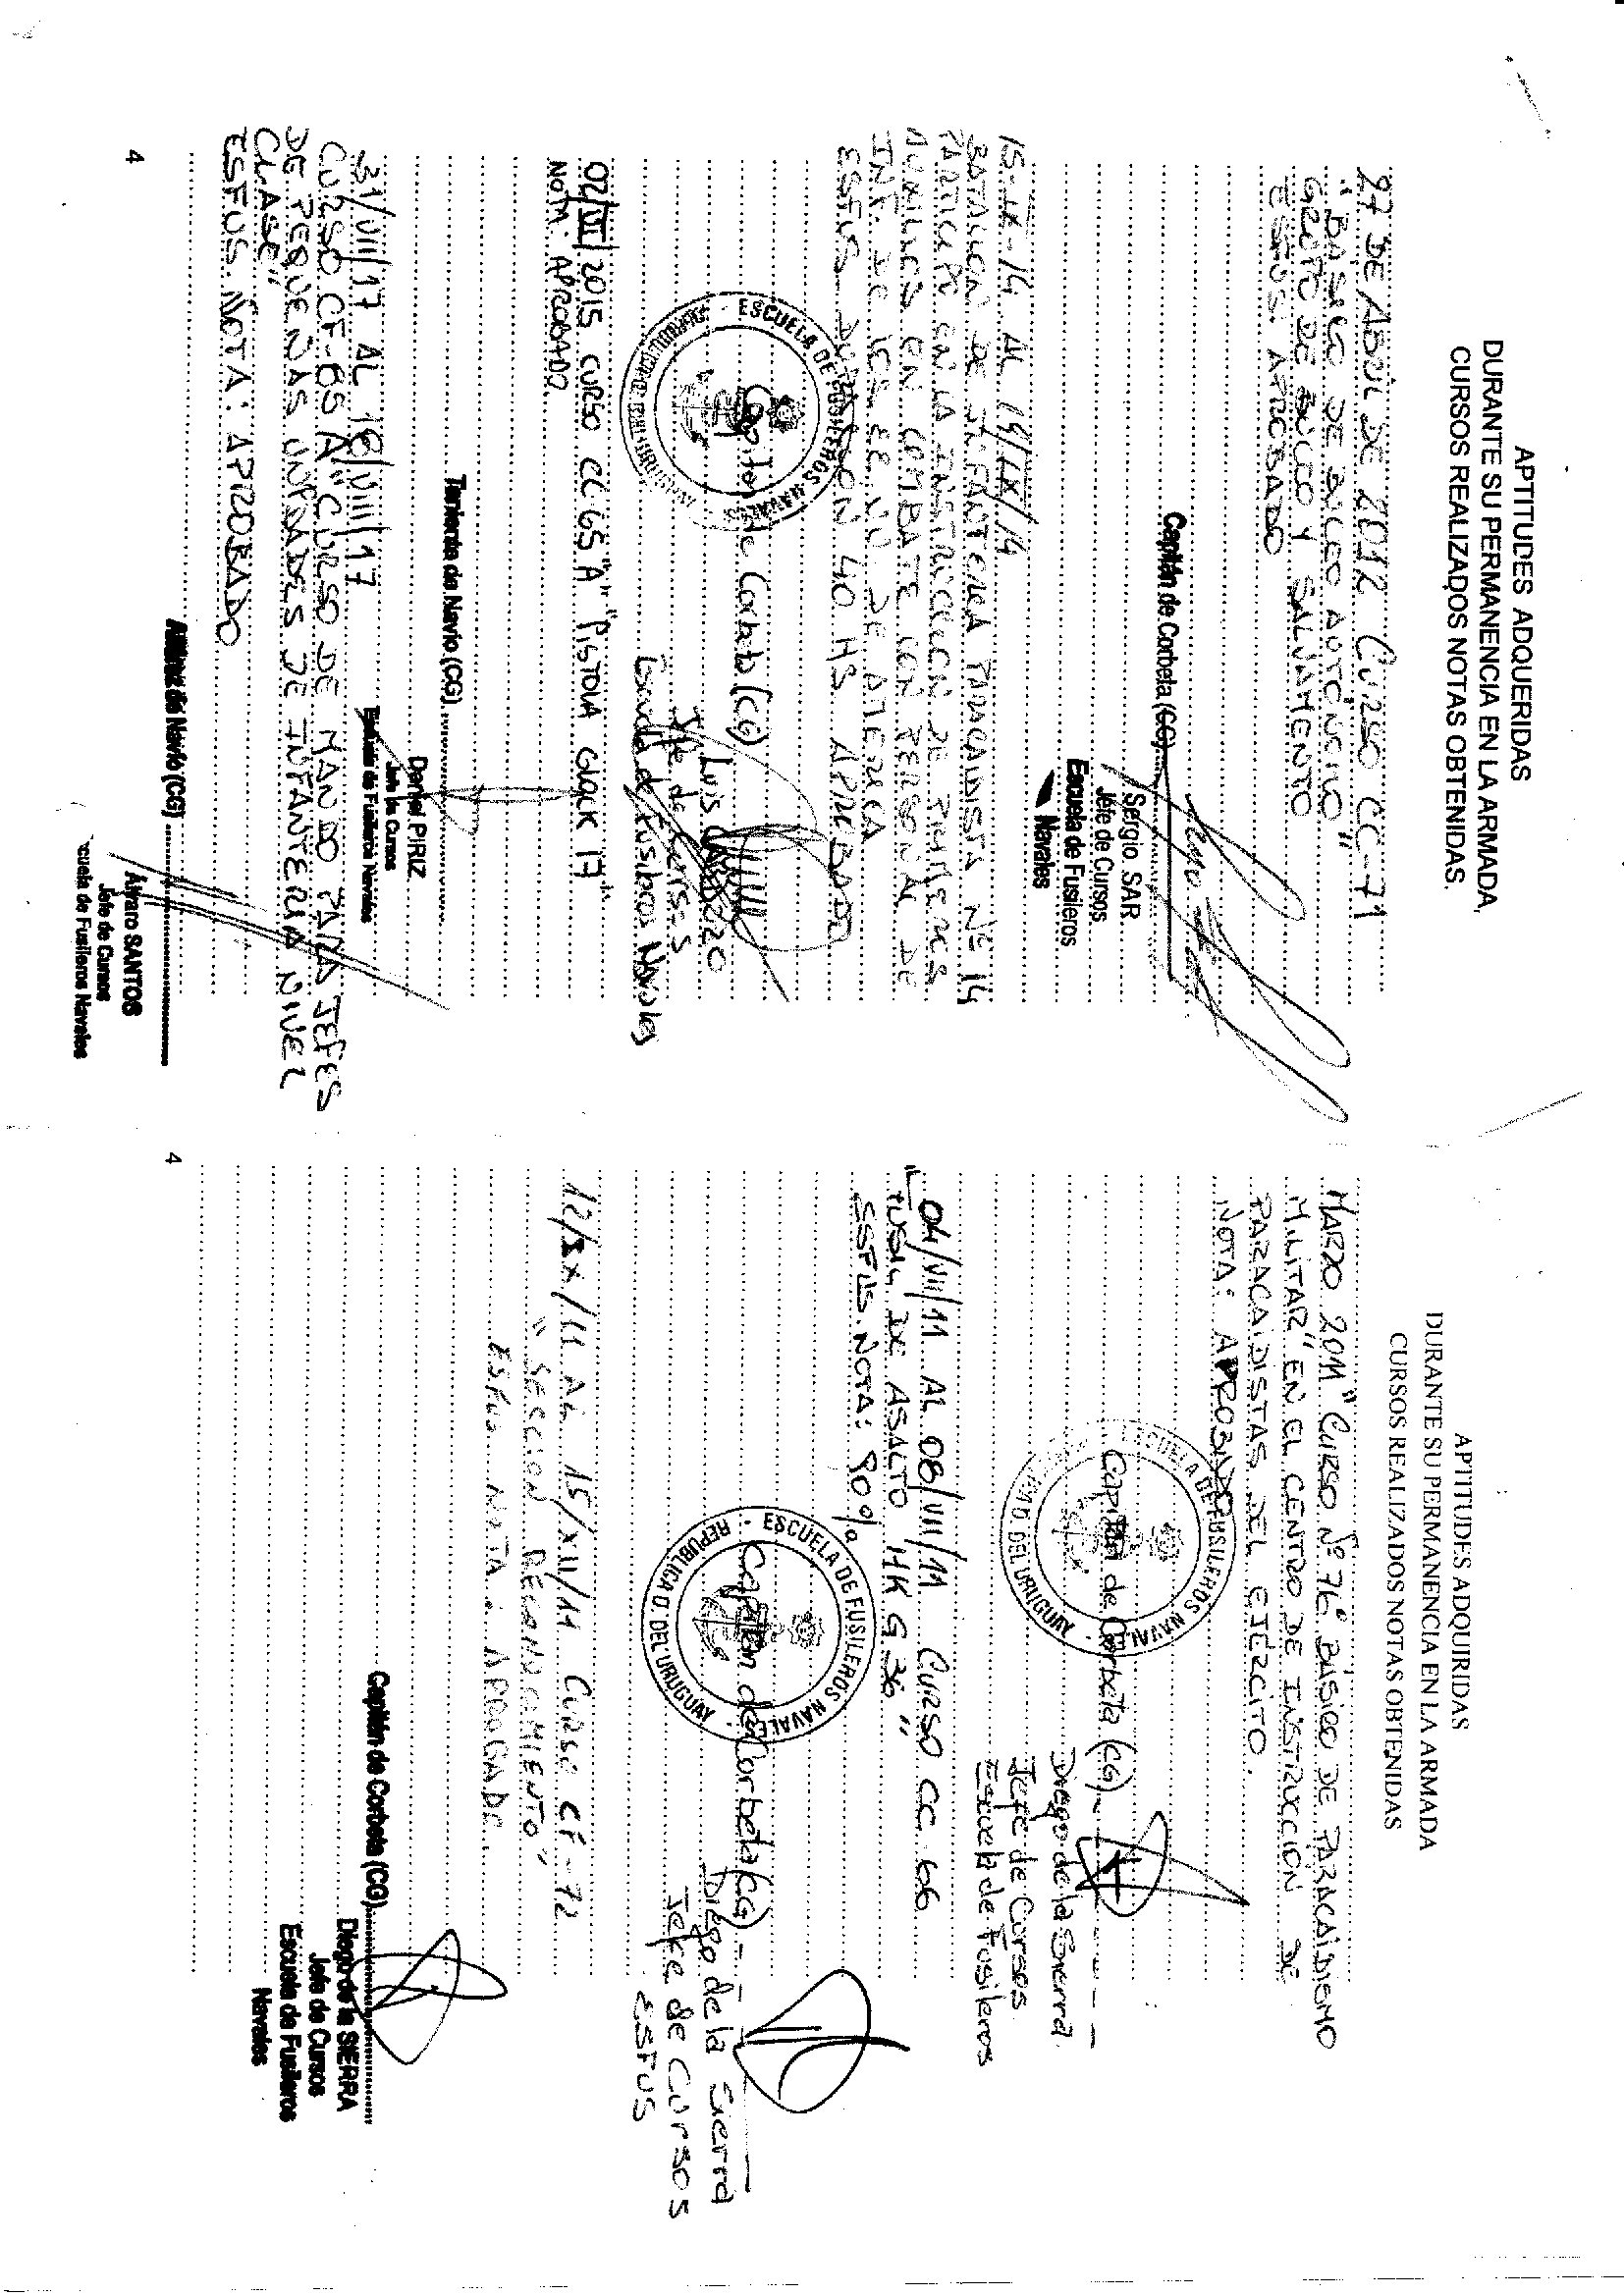 APTITUDES ADQUERIDAS
DURANTE SU PERMANENCIA EN LA ARMADA,
CURSOS REALIZADOS NOTAS OBTENIDAS.
27 DE ABRIL DE 2012 CURSO CC-71
"BASICO DE BUCEO AUTONOMO"
GRUPO DE BUCEO Y SALVAMENTO
ESFUS. APROBADO
Capitán de Corbeta (CG)
Sergio SAR
Jefe de Cursos
Escuela de Fusileros
Navales
15-IX-14 AL 19/IX/14
BATALLON DE INFANTERIA PARACAIDISTA Nº 14
PARTICIPO EN LA INSTRUCCION DE PRIMEROS
AUXILIOS EN COMBATE CON PERSONAL DE
INF. DE
ESFUS 40 HS APROBADO
ESCUELA DE FUSILEROS NAVALES
Capitan de Corbeta (CG)
Luis
Jefe de Cursos
Escuela de Fusileros Navales
02/VII/2015 CURSO CC 65 A "PISTOLA GLOCK 17"
NOTA: APROBADO
Teniente de Navío (CG)
Daniel PIRIZ
Jefe de Cursos
Escuela de Fusileros Navales
31/VII/17 AL 18/VIII/17
CURSO CF-65 A "CURSO DE MANDO PARA JEFES
DE PEQUENAS UNIDADES DE INFANTERIA NIVEL
CLASE"
ESFUS. NOTA: APROBADO
Alférez de Navío (CG)
Alvaro SANTOS
Jefe de Cursos
scuela de Fusileros Navales
4
APTITUDES ADQUIRIDAS
DURANTE SU PERMANENCIA EN LA ARMADA
CURSOS REALIZADOS NOTAS OBTENIDAS
MARZO 2011 "CURSO Nº 76º BÁSICO DE PARACAIDISMO
MILITAR" EN EL CENTRO DE INSTRUCCIÓN DE
PARACAIDISTAS DEL EJÉRCITO.
NOTA: APROBADO
ESCUELA DE FUSILEROS NAVALES
O. DEL URUGUAY
Capitán de Corbeta (CG)
Diego de la Sierra
Jefe de Cursos
Escuela de Fusileros
04/VII/11 AL 08/VII/11 CURSO CC 66
"FUSIL DE ASALTO HK G 36"
ESFUS. NOTA: 90%
ESCUELA DE FUSILEROS NAVALES - REPUBLICA O. DEL URUGUAY -
Capitán de Corbeta (CG)
Diego de la Sierra
Jefe de Cursos
ESFUS
12/IX/11 AL 15/XII/11 CURSO CF-72
"SECCION RECONOCIMIENTO"
ESFUS NOTA: APROBADO.
Capitán de Corbeta (CG)
Diego de la SIERRA
Jefe de Cursos
Escuela de Fusileros
Navales
4